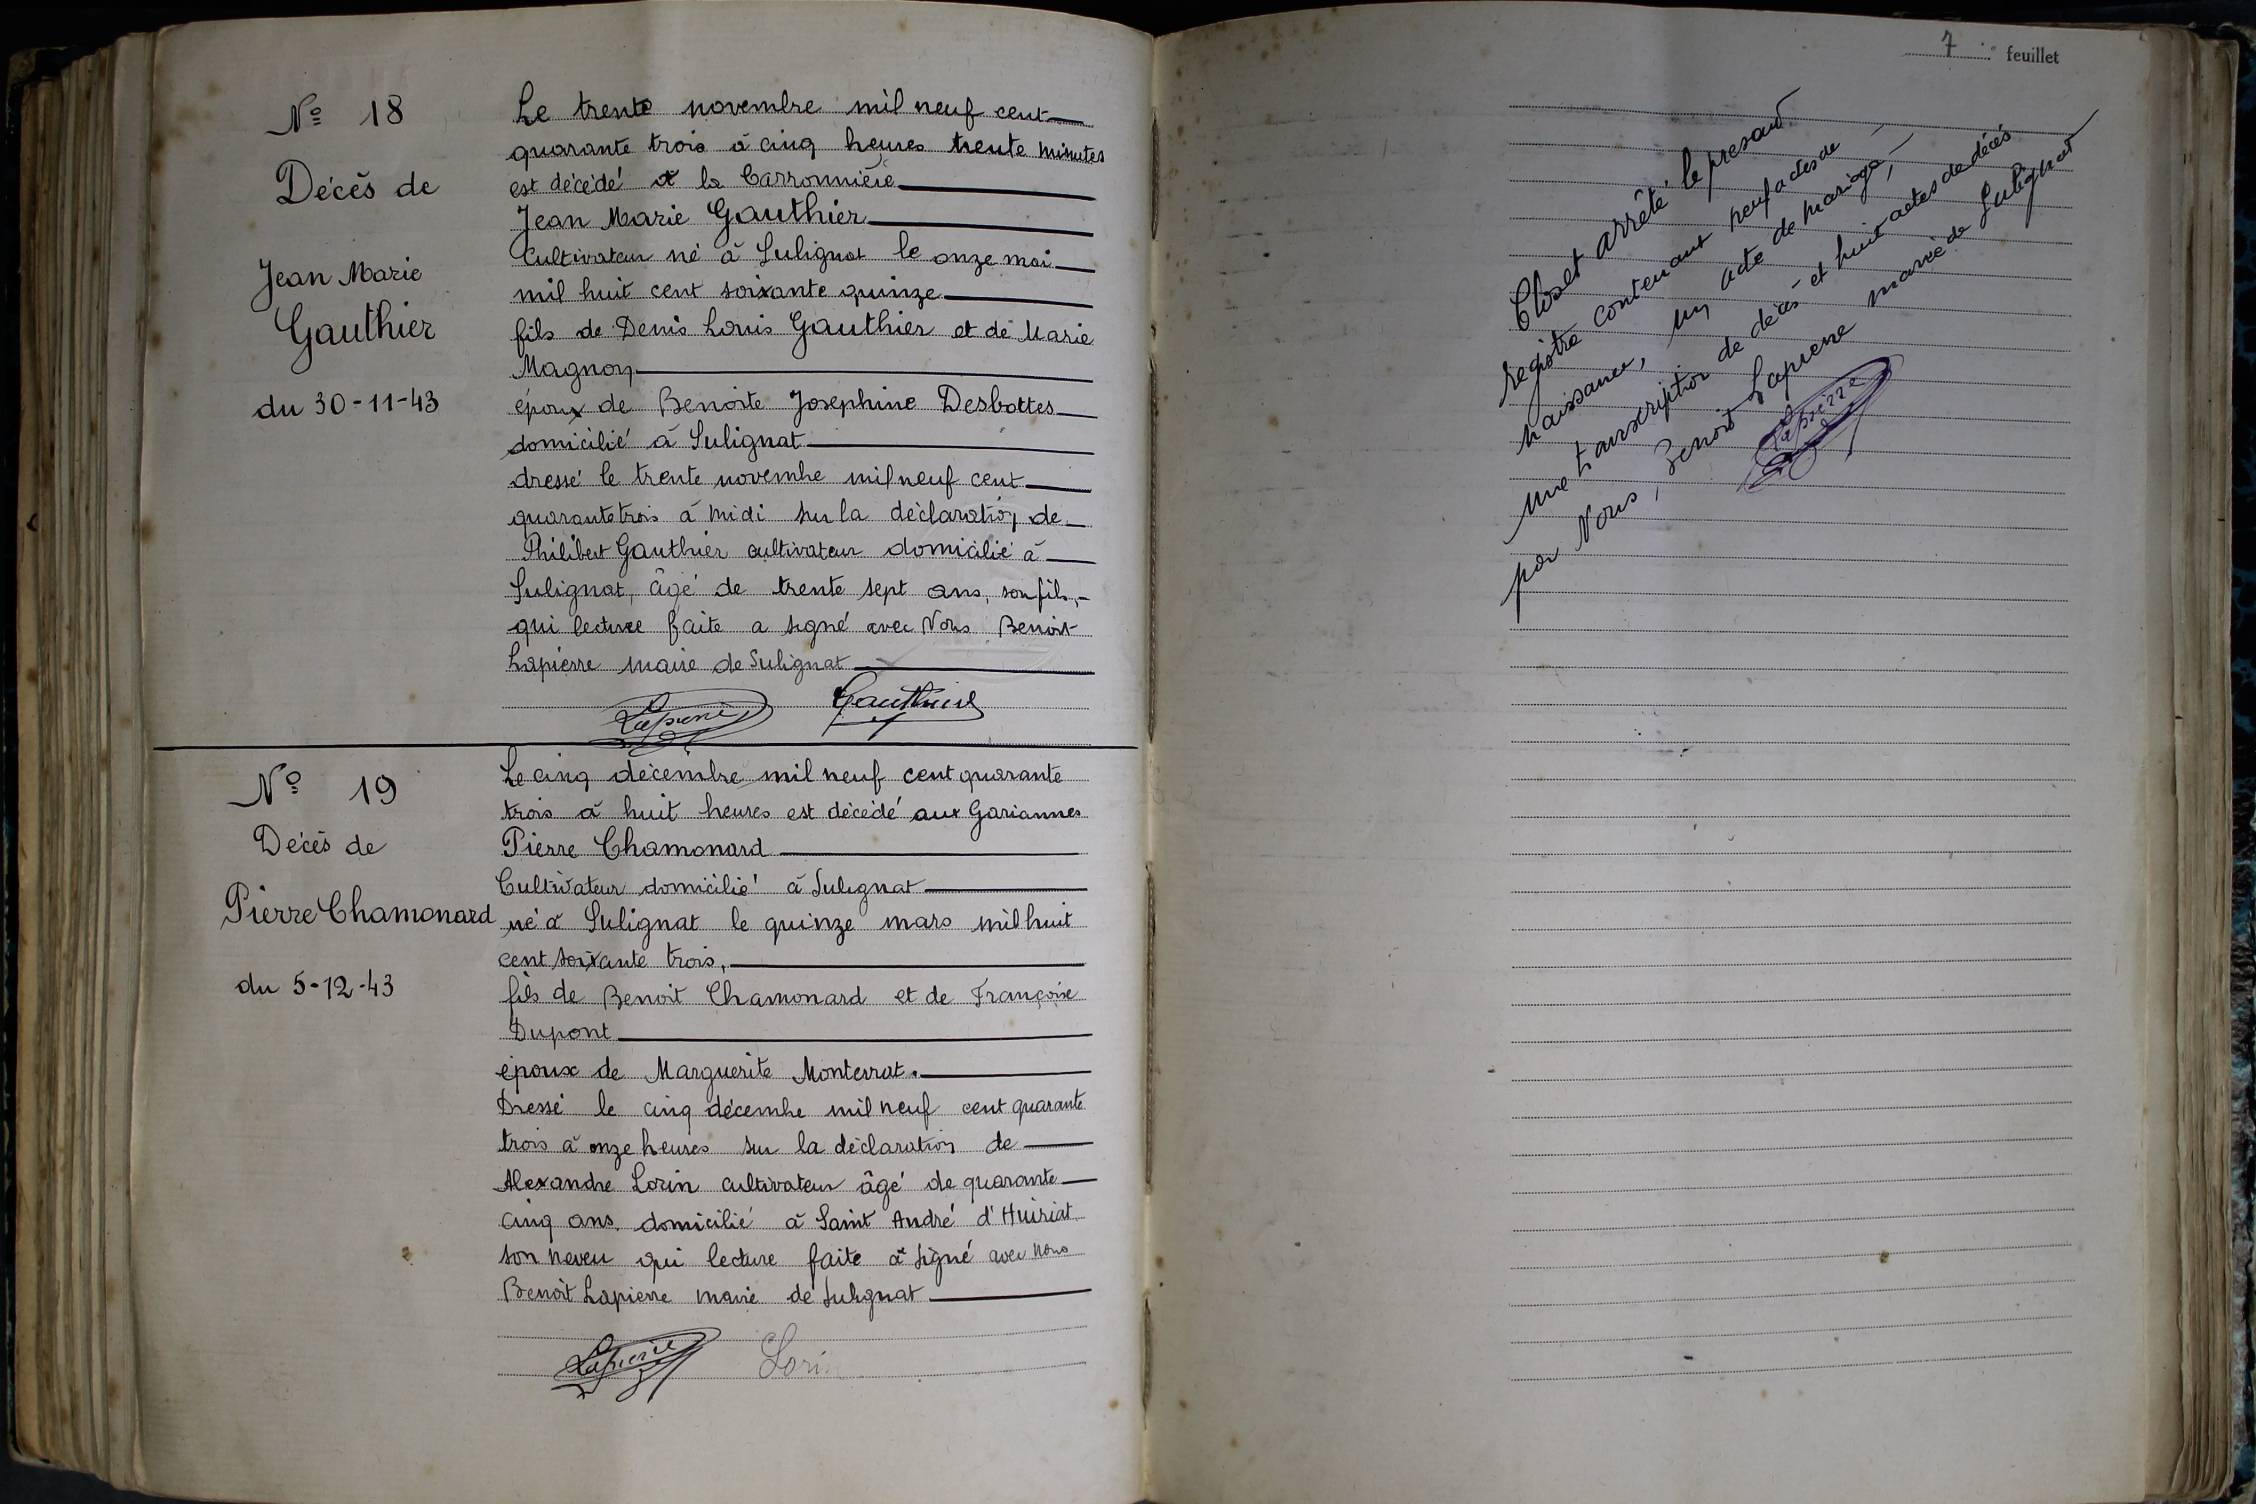 Nº 18
Décès de
Jean Marie
Gauthier
du 30-11-43
Le trente novembre mil neuf cent
quarante trois à cinq heures trente minutes
est décédé à la Carronnière
Jean Marie Gauthier
Cultivateur né à Sulignat le onze mai
mil huit cent soixante quinze
fils de Denis Louis Gauthier et de Marie
Magnon
époux de Benoite Josephine Desbottes
domicilié à Sulignat
dressé le trente novembre mil neuf cent
quarante trois à midi sur la déclaration de
Philibert Gauthier cultivateur domicilié à
Sulignat, âgé de trente sept ans, son fils,
qui lecture faite a signé avec Nous Benoit
Lapierre maire de Sulignat
Lapierre Gauthier
Nº 19
Décès de
Pierre Chamonard
du 5-12-43
Le cinq décembre mil neuf cent quarante
trois à huit heures est décédé aux Gariannes
Pierre Chamonard
Cultivateur domicilié à Sulignat
né à Sulignat le quinze mars mil huit
cent soixante trois,
fils de Benoit Chamonard et de Françoise
Dupont
époux de Marguerite Monterrat.
Dressé le cinq décembre mil neuf cent quarante
trois à onze heures sur la déclaration de
Alexandre Lorin cultivateur âgé de quarante
cinq ans, domicilié à Saint André d'Huiriat
son neveu qui lecture faite a signé avec Nous
Benoît Lapierre maire de Sulignat
Lapierre Lorin
7 feuillet
Clos et arrêté le présent
registre contenant neuf actes de
naissance, un acte de mariage,
une transcription de décès et huit actes de décès
par Nous, Benoît Lapierre maire de Sulignat
Lapierre